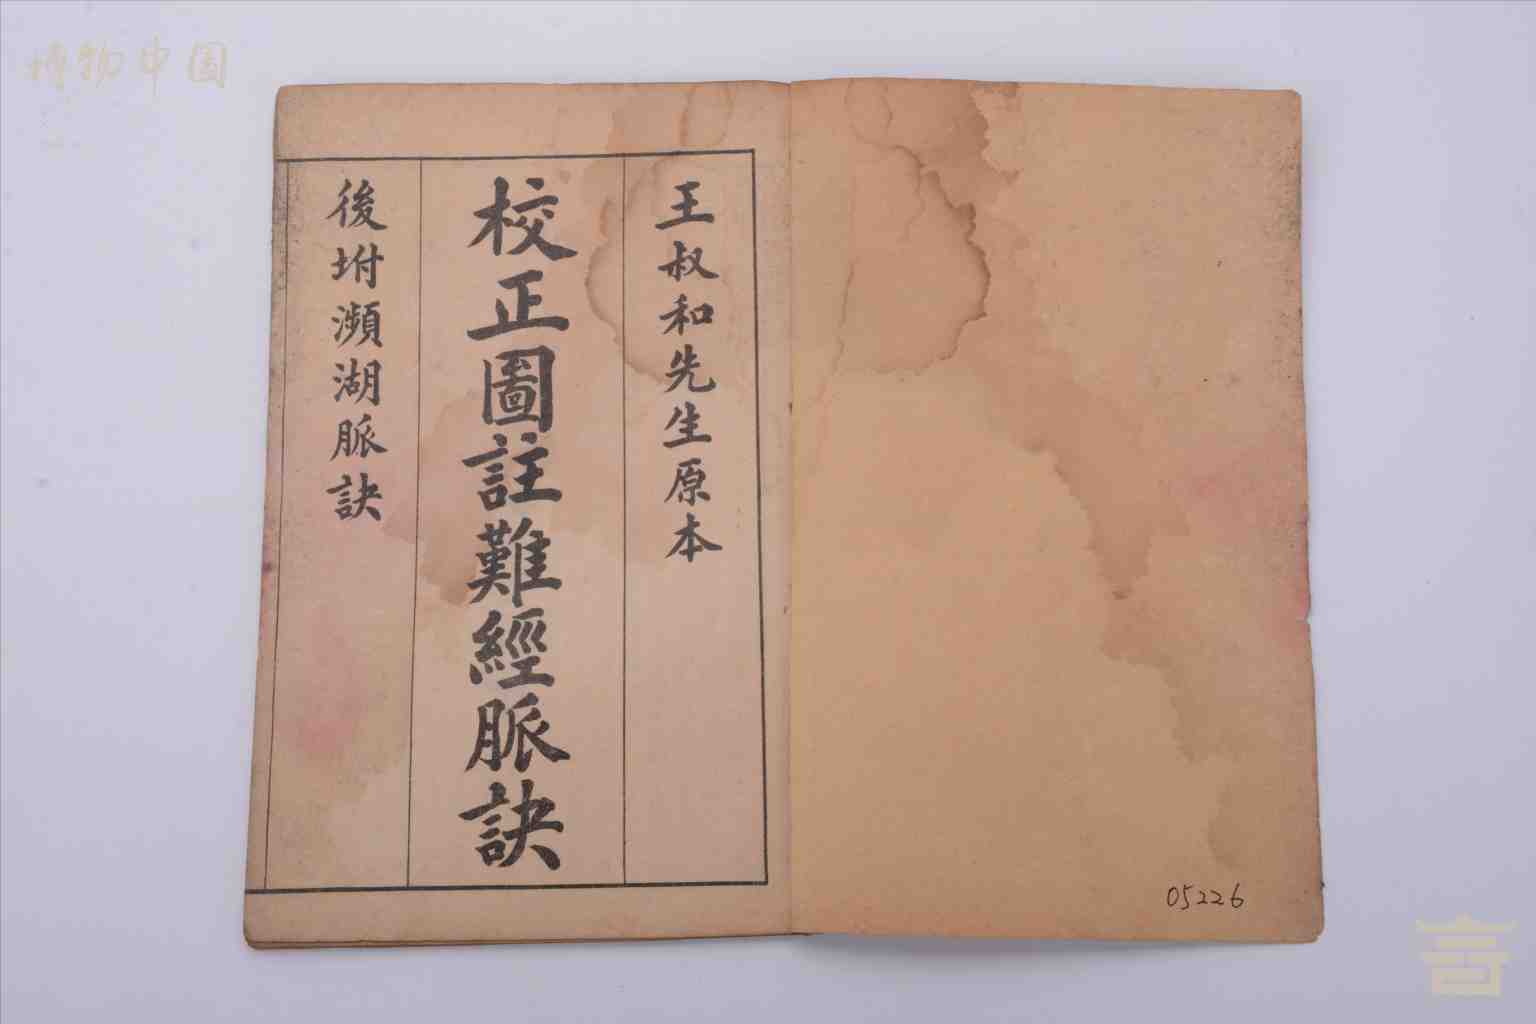 博物中国
王叔和先生原本
校正圖註難經脈訣
後坿瀕湖脈訣
05226